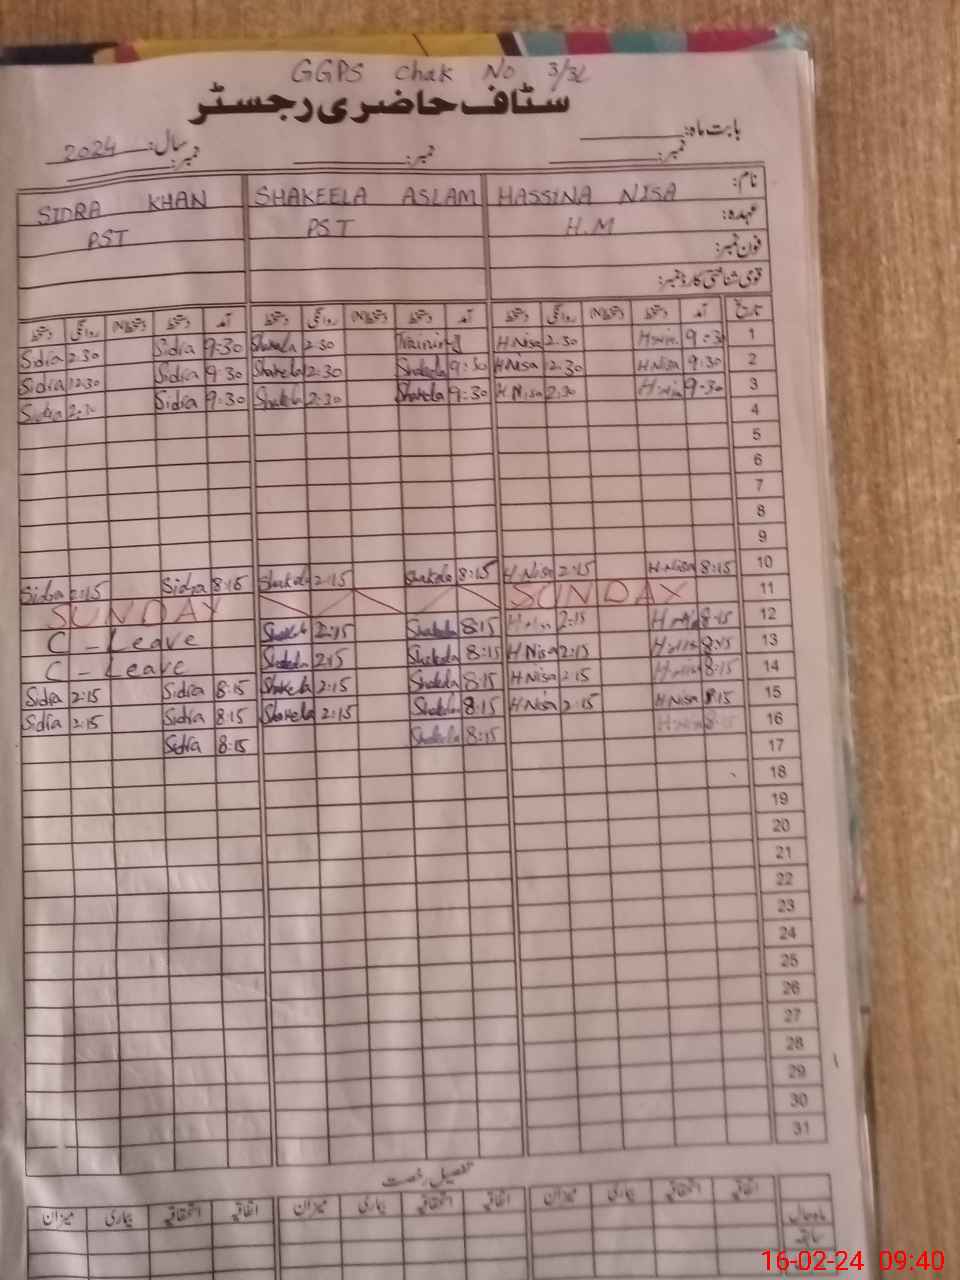 GGPS Chak No 3/3L
سٹاف حاضری رجسٹر
بابت ماہ:
سال: 2024
نمبر: نمبر: نمبر:
نام: HASSINA NISA SHAKEELA ASLAM SIDRA KHAN
عہدہ: H.M PST PST
فون نمبر:
قومی شناختی کارڈ نمبر:
تاریخ آمد دستخط دستخط روانگی دستخط آمد دستخط دستخط روانگی دستخط آمد دستخط دستخط روانگی دستخط
Sidra 2:30 Sidra 9:30 2:30 Training H Nisa 2:30 9:30 1
Sidra 12:30 Sidra 9:30 Shakela 2:30 Shakela 9:30 H Nisa 12:30 H Nisa 9:30 2
Sidra 2:30 Sidra 9:30 Shakela 2:30 Shakela 9:30 H Nisa 2:30 H Nisa 9:30 3
4
5
6
7
8
9
Sidra 2:15 Sidra 8:15 Shakela 2:15 Shakela 8:15 H.Nisa 2:15 H.Nisa 8:15 10
SUNDAY SUNDAY 11
C - Leave Shakela 2:15 Shakela 8:15 2:15 8:15 12
C - Leave Shakela 2:15 Shakela 8:15 H Nisa 2:15 8:15 13
Sidra 2:15 Sidra 8:15 Shakela 2:15 Shakela 8:15 H Nisa 2:15 8:15 14
Sidra 2:15 Sidra 8:15 Shakela 2:15 Shakela 8:15 H Nisa 2:15 H Nisa 8:15 15
Sidra 8:15 Shakela 8:15 8:15 16
17
18
19
20
21
22
23
24
25
26
27
28
29
30
31
تفصیل رخصت
اتفاقیہ استحقاقیہ بیماری میزان اتفاقیہ استحقاقیہ بیماری میزان اتفاقیہ استحقاقیہ بیماری میزان
ماہ حال
سابقہ
16-02-24 09:40